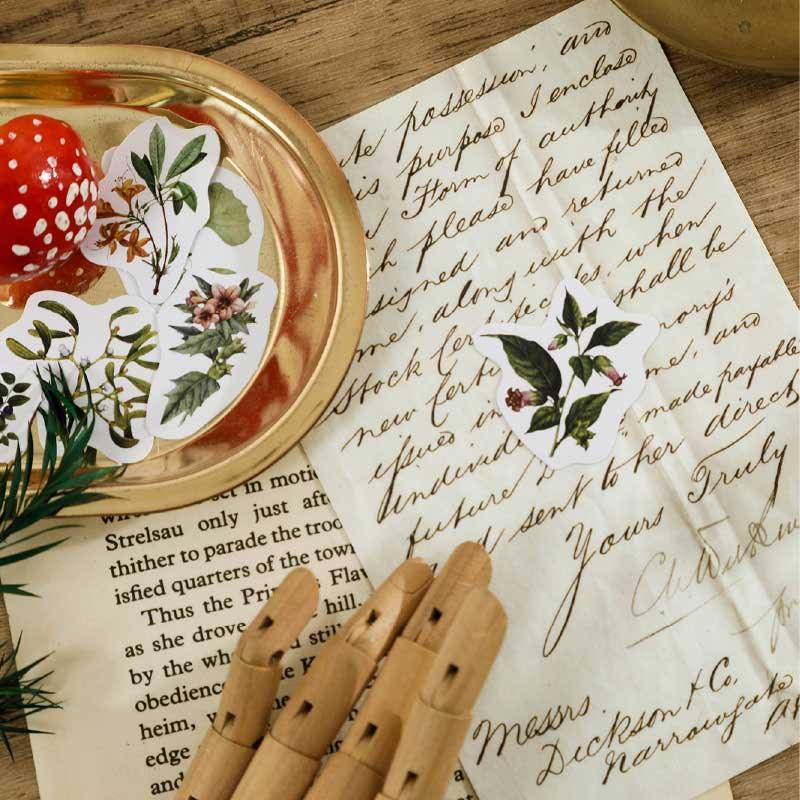 possession, and
is purpose I enclose
Form of authority
please have filled
signed and returned
me, along with the
Stock when
new shall be
issued in me, and
made payable
future direct
sent to her
Yours Truly
Messrs.
Dickson & Co.
Narrowgate
set in motio
Strelsau only just afte
thither to parade the troo
isfied quarters of the town
Thus the Pri Flav
as she drove hill,
by the wh still
obedience the K
heim, w
edge
and